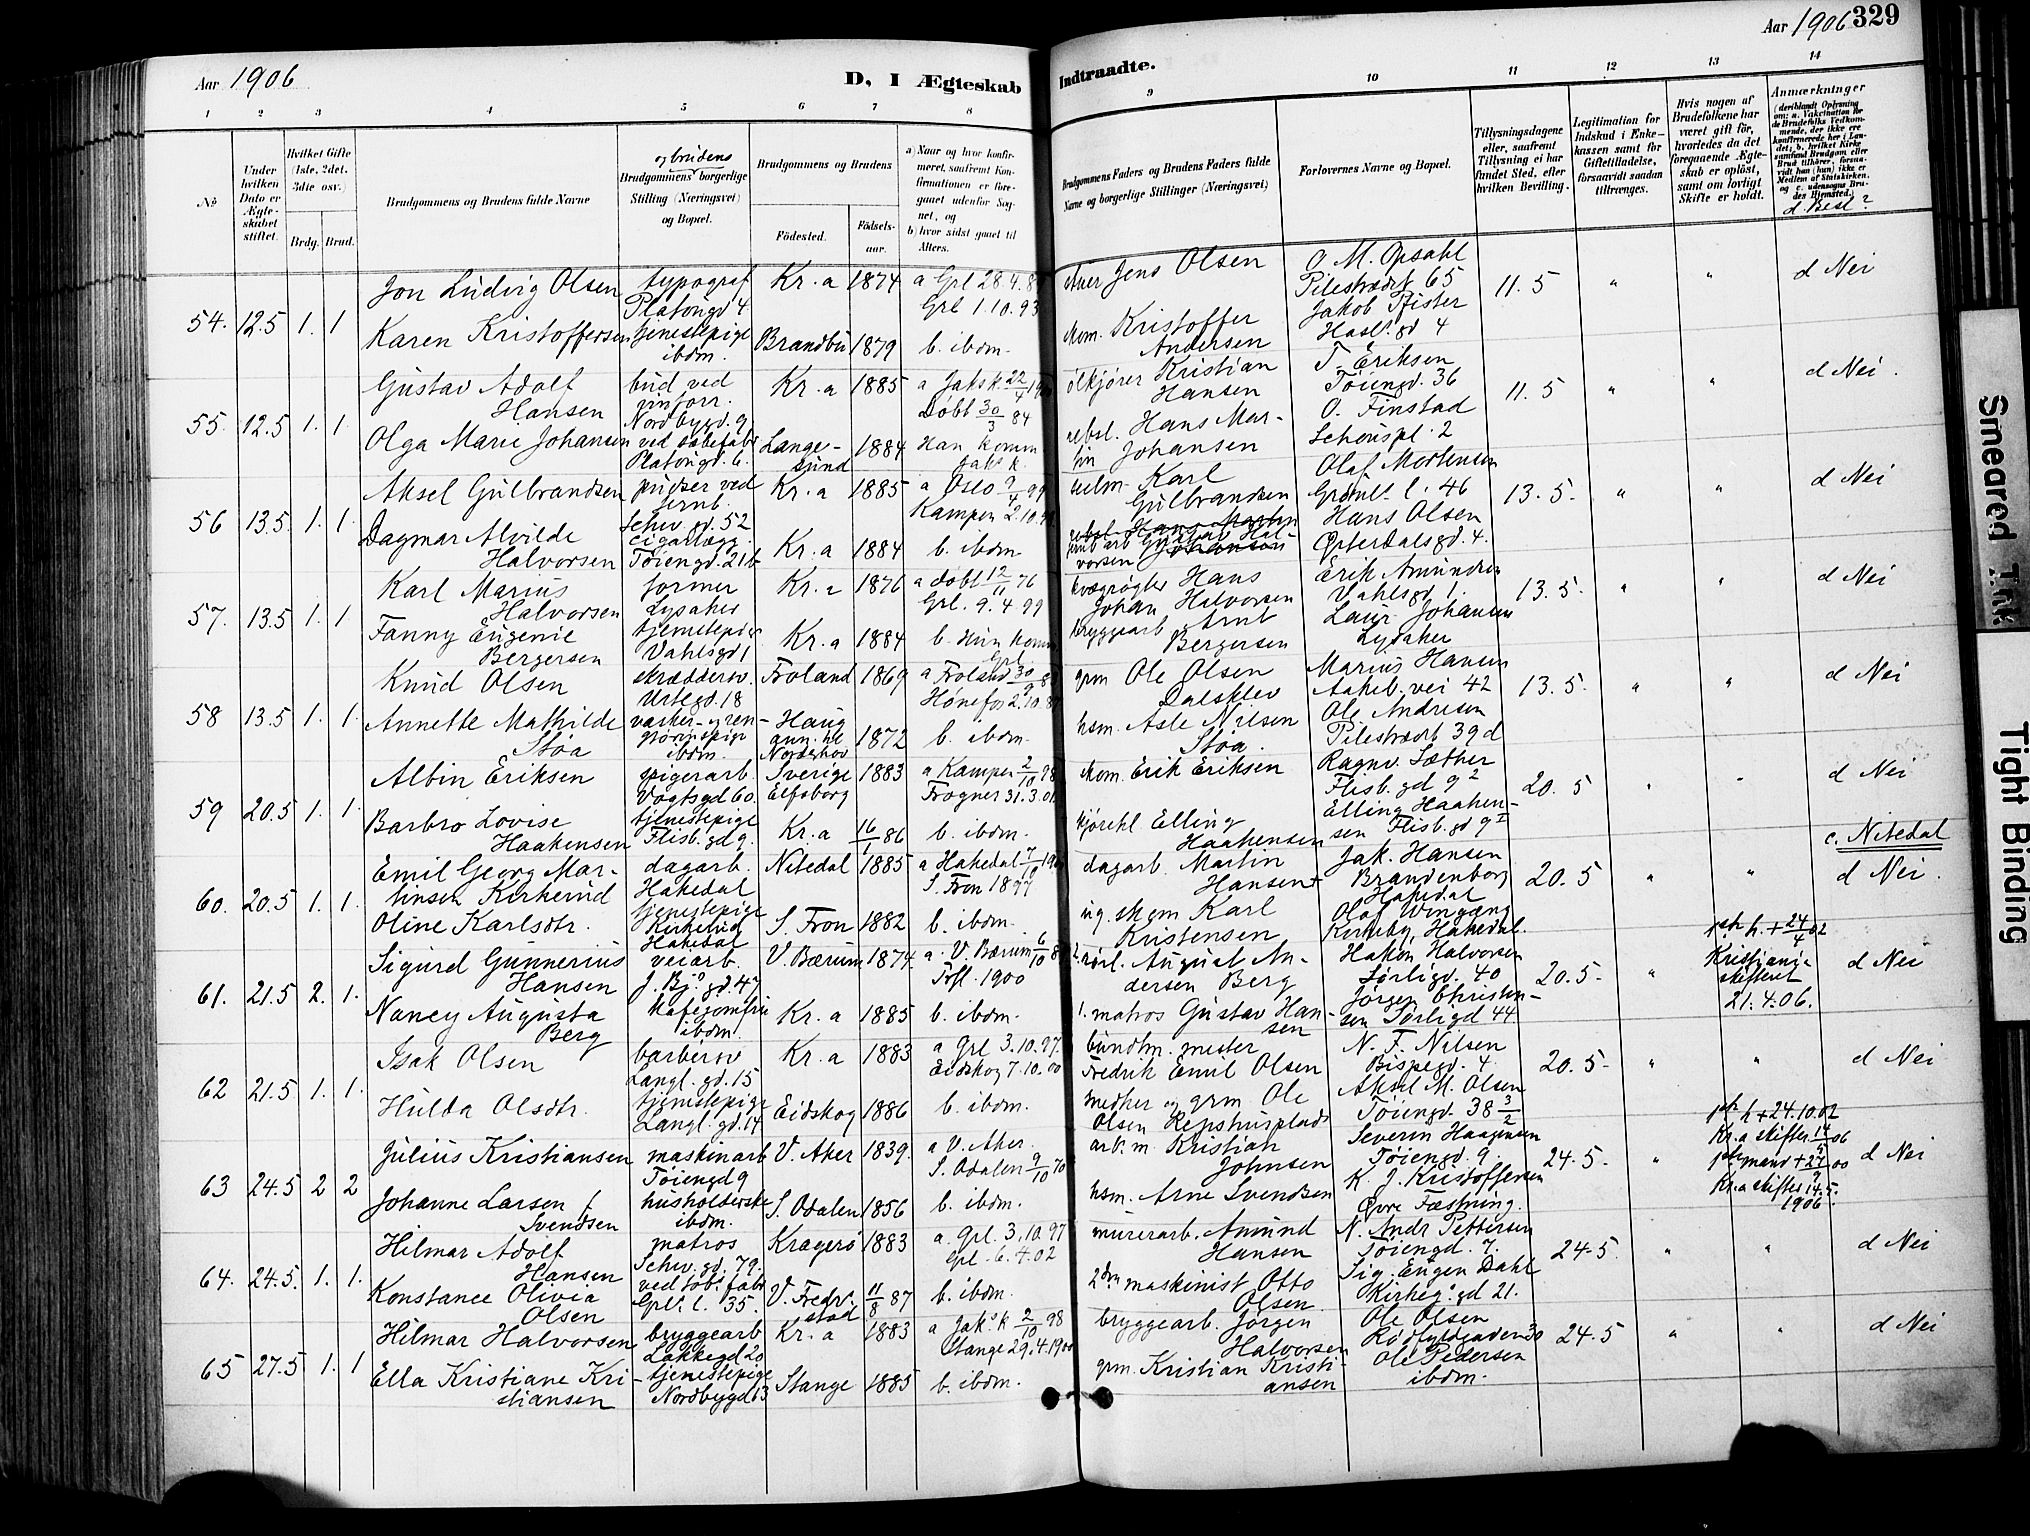 Aar 1906
D, I Ægteskab
1 2 3 4 5 6 7 8
No
Under hvilken Dato er Ægteskabet stiftet.
Hvilket Gifte (1ste, 2det, 3die osv.)
Brdg. Brud.
Brudgommens og Brudens fulde Navne
og brudens
Brudgommens borgerlige Stilling (Næringsvei) og Bopæl.
Brudgommens og Brudens
Fødested. Fødselsaar.
a) Naar og hvor konfirmeret, saafremt Konfirmationen er foregaaet udenfor Sognet, og
b) hvor sidst gaaet til Alters.
54. 12.5 1. 1
Jon Ludvig Olsen typograf Platongd 4 Kr.a 1874 a Grl 28.4. Grl 1.10.93
Karen Kristoffersen tjenestepige ibdm. Brandbu 1879 b. ibdm.
55. 12.5 1. 1.
Gustav Adolf Hansen bud ved Nordbygd. 9 Kr.a 1885 a Jaks k. 22/4 Døbt 30/3 84
Olga Marie Johansen Platongd. 6. Langesund 1884 Han komm Jaks k.
56 13.5. 1. 1.
Aksel Gulbrandsen pudser ved jernb. Schw. gd. 52 Kr.a 1885 a Oslo Kampen 2.10.
Dagmar Alvilde Halvorsen Tøiengd. 21b Kr.a 1884 b. ibdm
57. 13.5 1. 1
Karl Marius Halvorsen former Lysaker Kr.a 1876 a døbt 12/11 76 Grl. 9.4 99
Fanny Eugenie Bergersen tjenestepige Vahlsgd 1 Kr.a 1884 b. Hun komm Grl
58 13.5 1. 1.
Knud Olsen skræddersv. Urtegd. 18 Froland 1869 a Froland Hønefos 2.10.
Annette Mathilde Støa vasker- og rengjøringspige ibdm. Haug ann. til Norderhov 1872 b. ibdm.
59 20.5 1. 1.
Albin Eriksen spigerarb. Vogtsgd 60. Sverige Elfsborg 1883 a Kampen 2/10 98 Frogner 31.3.01
Barbro Lovise Haakensen tjenestepige Flisb. gd 9. Kr.a 16/1 86 b. ibdm.
60. 20.5 1. 1.
Emil Georg Martinsen Kirkerud dagarb. Hakedal Nitedal 1885 a Hakedal S. Fron 1897
Oline Karlsdtr. tjenestepige Kirkerud Hakedal S. Fron 1882 b. ibdm.
61. 21.5 2. 1.
Sigurd Gunnerius Hansen veiarb. J. Bj. gd. 47 V. Bærum 1874. a. V. Bærum 6/10 Frfl. 1900
Nancy Augusta Berg Kafejomfru ibdm. Kr.a 1885 b. ibdm.
62 21.5 1. 1.
Isak Olsen barbersv Langl. gd. 15 Kr.a 1883 a Grl 3.10.97. Eidskog 7.10.00
Hulda Olsdtr. tjenestepige Langl. gd. 14 Eidskog 1886 b. ibdm.
63 24.5 2 2
Julius Kristiansen maskinarb Tøiengd 9 V. Aker 1839. a V. Aker S. Odalen 9/10 70
Johanne Larsen f Svendsen husholderske ibdm. S. Odalen 1856 b. ibdm.
64. 24.5. 1. 1.
Hilmar Adolf Hansen matros Schw. gd. 79. Kragerø 1883 a. Grl. 3.10.97 Grl. 6.4.02
Konstance Olivia Olsen ved tob. fabr Grl. l. 35. V. Fredr.stad 11/8 87 b. ibdm.
65 27.5 1. 1
Hilmar Halvorsen bryggearb Lakkegd 20 Kr.a 1883 a Jak. k 2/10 98 Stange 29.4.1900
Ella Kristiane Kristiansen tjenestepige Nordbygd 13 Stange 1885 b. ibdm.
Indtraadte.
Aar 1906 329
9 10 11 12 13 14
Brudgommens Faders og Brudens Faders fulde Navne og borgerlige Stillinger (Næringsvei)
Forlovernes Navne og Bopæl.
Tillysningsdagene eller, saafremt Tillysning ei har fundet Sted, efter hvilken Bevilling.
Legitimation for Indskud i Enkekassen samt for Giftetilladelse, forsaavidt saadan tiltrænges.
Hvis nogen af Brudefolkene har været gift før, hvorledes da det foregaaende Ægteskab er opløst, samt om lovligt Skifte er holdt.
Anmærkninger (deriblandt Oplysning om: a. Vakcination for de Brudefolks Vedkommende, der ikke ere konfirmerede her i Landet; b. hvilket Kirkesamfund Brudgom eller Brud tilhører, forsaavidt han (hun) ikke er Medlem af Statskirken, og c. udensogns Brudes Hjemsted.)
d. Besl?
Jens Olsen O. M. Opsahl Pilestrædet 65 11.5 " " d Nei
Kristoffer Andersen Jakob Pfister Hasl. gd 4
ølkjører Kristian Hansen T. Eriksen Tøiengd. 36 11.5 " " d Nei.
Hans Martin Johansen O. Finstad Schouspl. 2
Karl Gulbrandsen Olaf Mortensen Grønl. l. 46 13.5. " " d Nei
rebsl. Hans Martin Johansen
jernb arb Gustav Halvorsen Hans Olsen Østerdalsgd. 4.
kvægrøgter Hans Johan Halvorsen Erik Amundsen Vahlsgd 1. 13.5. " " d Nei
bryggearb Arnt Bergersen Laur Johansen Lysaker
grm Ole Olsen Dalsklev Marius Hansen Aakeb. vei 42 13.5. " " d Nei
hsm. Asle Nilsen Støa. Ole Andresen Pilestrædet 39d
skom. Erik Eriksen Ragnv. Sæther Flisb. gd 9 2 20.5 " " d Nei
kjørekl Elling Haakensen Elling Haakensen Flisb. gd 9 I
c. Nitedal
dagarb. Martin Hansen Jak. Hansen Brandenborg Hakedal 20.5 " " d Nei.
ug. skom Karl Kristensen Olaf Kirkeby, Hakedal.
August Andersen Berg Hakon Halvorsen Sørligd. 40 20.5. " h. + 24/4 02 Kristiania skifteret 21.4.06. d Nei
1. matros Gustav Hansen Jørgen Christensen Sørligd 44.
bundtm. mester Fredrik Emil Olsen N. F. Nilsen Bispegd. 4. 20.5. " " d Nei
medker og grm Ole Olsen Repshusplads Aksel M. Olsen Tøiengd. 38 3/2
arb. m. Kristian Johnsen Severin Haagensen Tøiengd. 9. 24.5. " h + 24.10.02 Kr.a skifter 06 d Nei
hsm. Arne Svendsen K. J. Kristoffersen Øvre Fæstning. mand + 00 Kr.a skifter 14.5. 1906.
murerarb. Amund Hansen N. Andr Pettersen Tøiengd. 7. 24.5. " " d Nei
maskinist Otto Olsen. Sig. Eugen Dahl Kirkeg. gd 21.
bryggearb. Jørgen Halvorsen Ole Olsen 24.5 " " d Nei
grm. Kristian Kristiansen Ole Pedersen ibdm.
Smeared Ink
Tight Binding